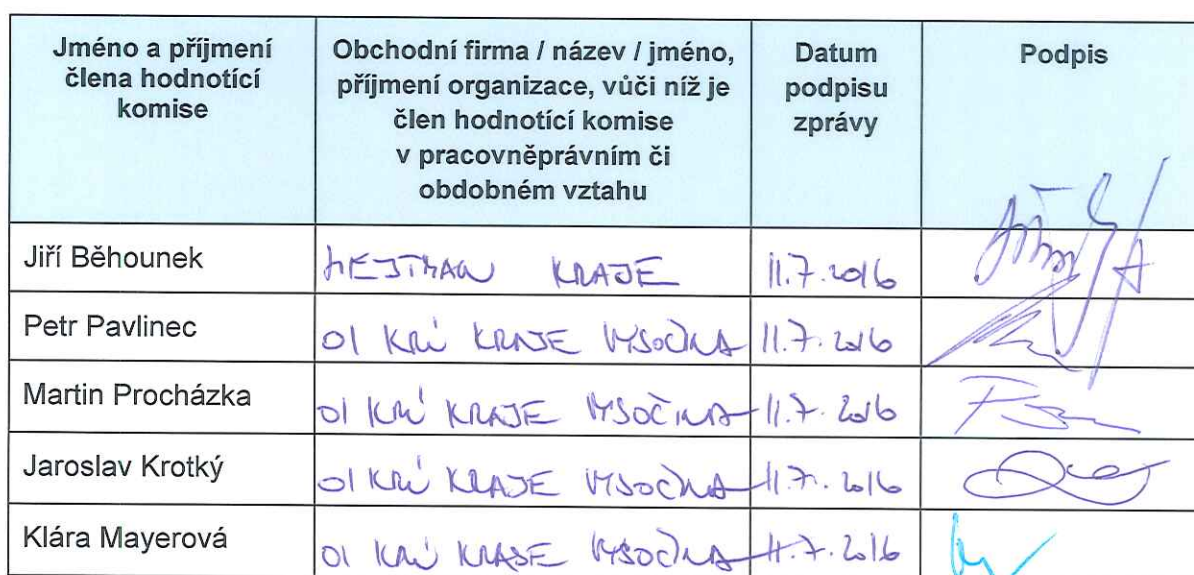 Jméno a příjmení
člena hodnotící
komise
Obchodní firma / název / jméno,
příjmení organizace, vůči níž je
člen hodnotící komise
v pracovněprávním či
obdobném vztahu
Datum
podpisu
zprávy
Podpis
Jiří Běhounek HEJTMAN KRAJE 11.7.2016
Petr Pavlinec OI KRÚ KRAJE VYSOČINA 11.7.2016
Martin Procházka OI KRÚ KRAJE VYSOČINA 11.7.2016
Jaroslav Krotký OI KRÚ KRAJE VYSOČINA 11.7.2016
Klára Mayerová OI KRÚ KRAJE VYSOČINA 11.7.2016